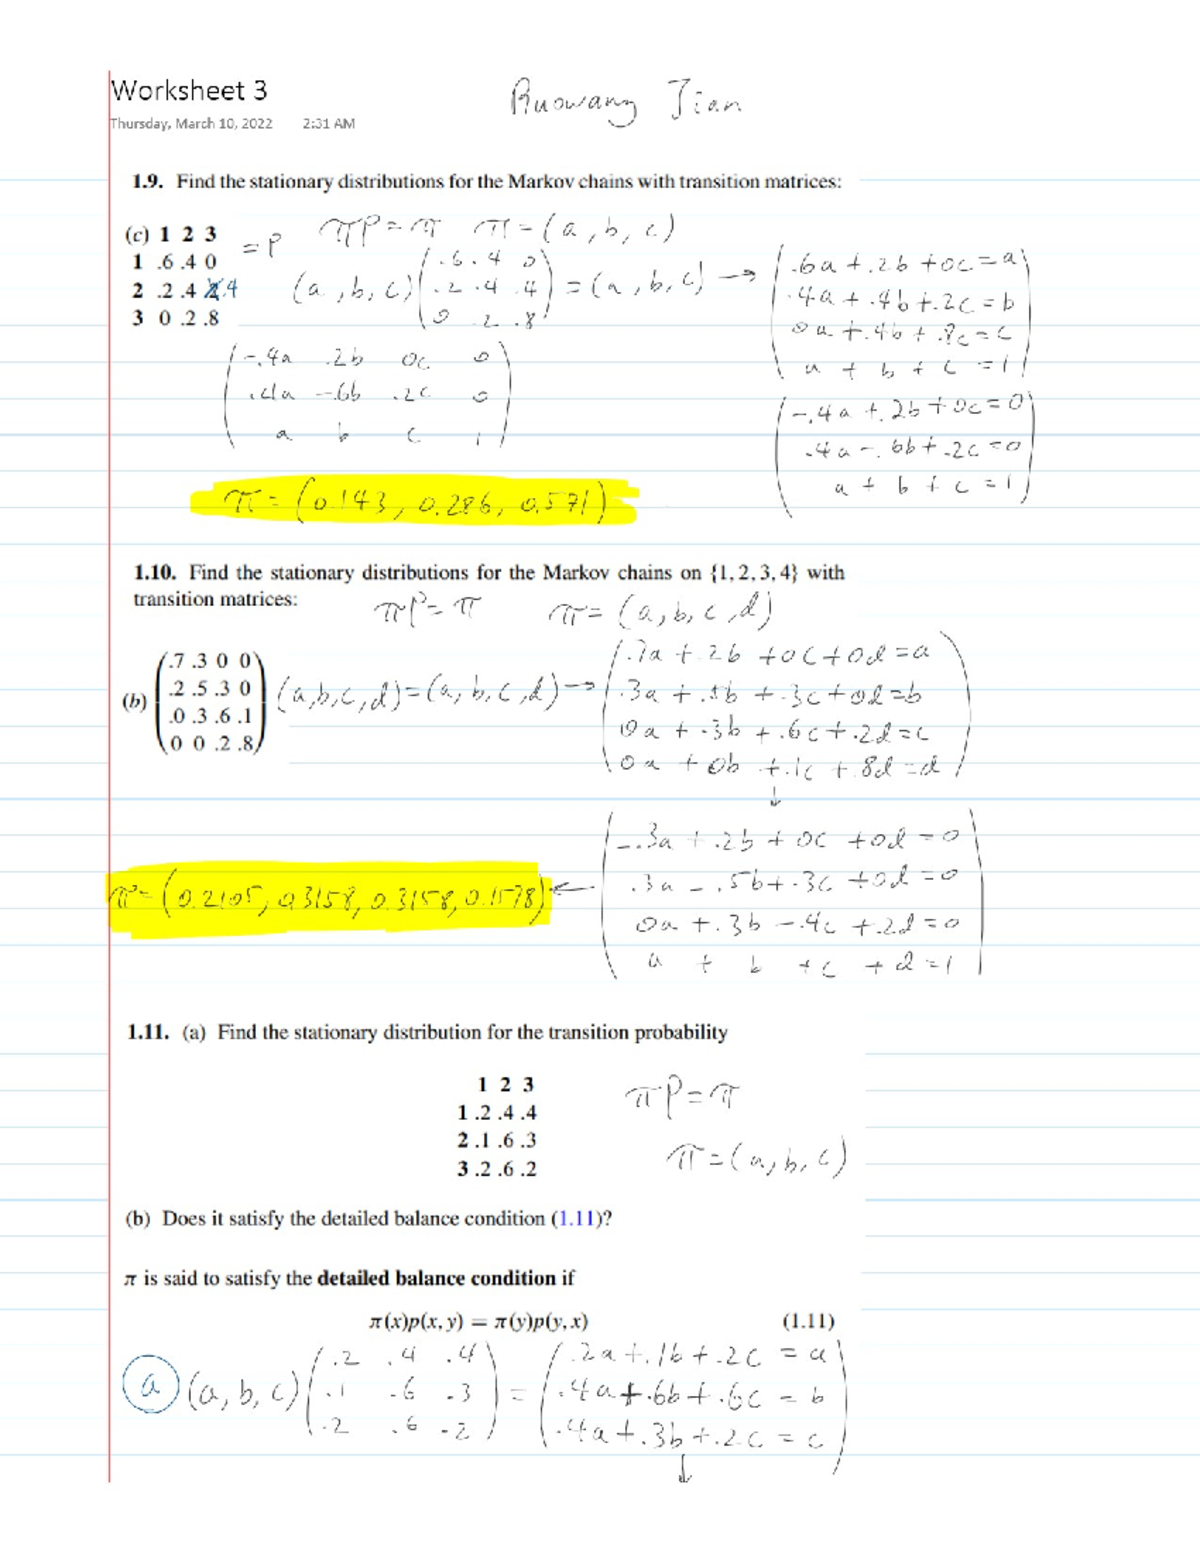 Worksheet 3
Ruowang Jian
Thursday, March 10, 2022 2:31 AM
1.9. Find the stationary distributions for the Markov chains with transition matrices:
(c) 1 2 3
1 .6 .4 0
2 .2 .4 .4
3 0 .2 .8
= P
πP = π π = (a, b, c)
(a, b, c) ( .6 .4 0
.2 .4 .4
0 .2 .8 ) = (a, b, c) →
.6a + .2b + 0c = a
.4a + .4b + .2c = b
0a + .4b + .8c = c
a + b + c = 1
-.4a .2b 0c 0
.4a -.6b .2c 0
a b c 1
-.4a + .2b + 0c = 0
.4a - .6b + .2c = 0
a + b + c = 1
π = (0.143, 0.286, 0.571)
1.10. Find the stationary distributions for the Markov chains on {1, 2, 3, 4} with
transition matrices:
πP = π π = (a, b, c, d)
(b)
.7 .3 0 0
.2 .5 .3 0
.0 .3 .6 .1
0 0 .2 .8
(a,b,c,d) = (a, b, c, d) →
.7a + .2b + 0c + 0d = a
.3a + .5b + .3c + 0d = b
0a + .3b + .6c + .2d = c
0a + 0b + .1c + .8d = d
↓
-.3a + .2b + 0c + 0d = 0
.3a - .5b + .3c + 0d = 0
0a + .3b - .4c + .2d = 0
a + b + c + d = 1
π = (0.2105, 0.3158, 0.3158, 0.1578) ←
1.11. (a) Find the stationary distribution for the transition probability
1 2 3
1 .2 .4 .4
2 .1 .6 .3
3 .2 .6 .2
πP = π
π = (a, b, c)
(b) Does it satisfy the detailed balance condition (1.11)?
π is said to satisfy the detailed balance condition if
π(x)p(x, y) = π(y)p(y, x) (1.11)
a (a, b, c) ( .2 .4 .4
.1 .6 .3
.2 .6 .2 ) =
.2a + .1b + .2c = a
.4a + .6b + .6c = b
.4a + .3b + .2c = c
↓